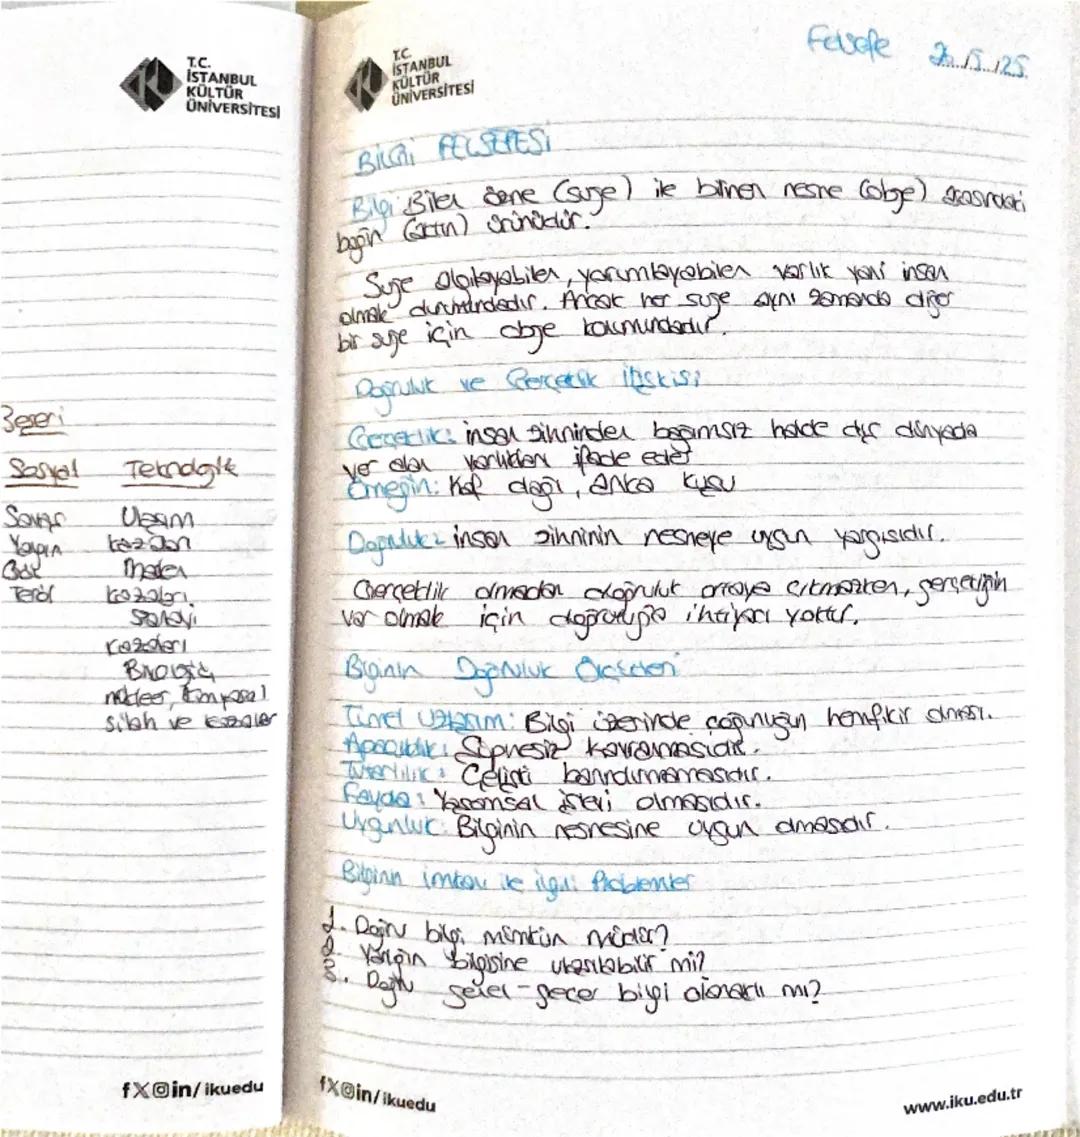 T.C.
İSTANBUL
KÜLTÜR
ÜNİVERSİTESİ
Beşeri
Sosyal Teknolojik
Savaş Ulaşım
Yangın kazaları
Göç Maden
Terör kazaları
Sanayi
kazaları
Biyolojik,
nükleer, kimyasal
silah ve kazalar
fX in/ikuedu
T.C.
İSTANBUL
KÜLTÜR
ÜNİVERSİTESİ
Felsefe
BİLGİ FELSEFESİ
Bilgi: Bilen özne (suje) ile bilinen nesne (obje) arasındaki
bağın (aktın) ürünüdür.
Suje algılayabilen, yorumlayabilen varlık yani insan
olmak durumundadır. Ancak her suje aynı zamanda diğer
bir suje için obje konumundadır.
Doğruluk ve Gerçeklik İlişkisi
Gerçeklik: insan zihninden bağımsız halde dış dünyada
ver olan varlıkları ifade eder
Örneğin: Kaf dağı, Anka kuşu
Doğruluk: insan zihninin nesneye uygun yargısıdır.
Gerçeklik olmadan doğruluk ortaya çıkmazken, gerçeğin
var olmak için doğruluğa ihtiyacı yoktur.
Bilginin Doğruluk Ölçütleri
Tümel Uzlaşım: Bilgi üzerinde çoğunluğun hemfikir olması.
Apaçıklık: Şüphesiz kavramasıdır.
Tutarlılık: Çelişki barındırmamasıdır.
Fayda: Yaşamsal işlevi olmasıdır.
Uygunluk: Bilginin nesnesine uygun olmasıdır.
Bilginin imkanı ile ilgili Problemler
1. Doğru bilgi mümkün müdür?
2. Varlığın bilgisine ulaşılabilir mi?
3. Doğru genel-geçer bilgi olanaklı mı?
fX in/ikuedu
www.iku.edu.tr